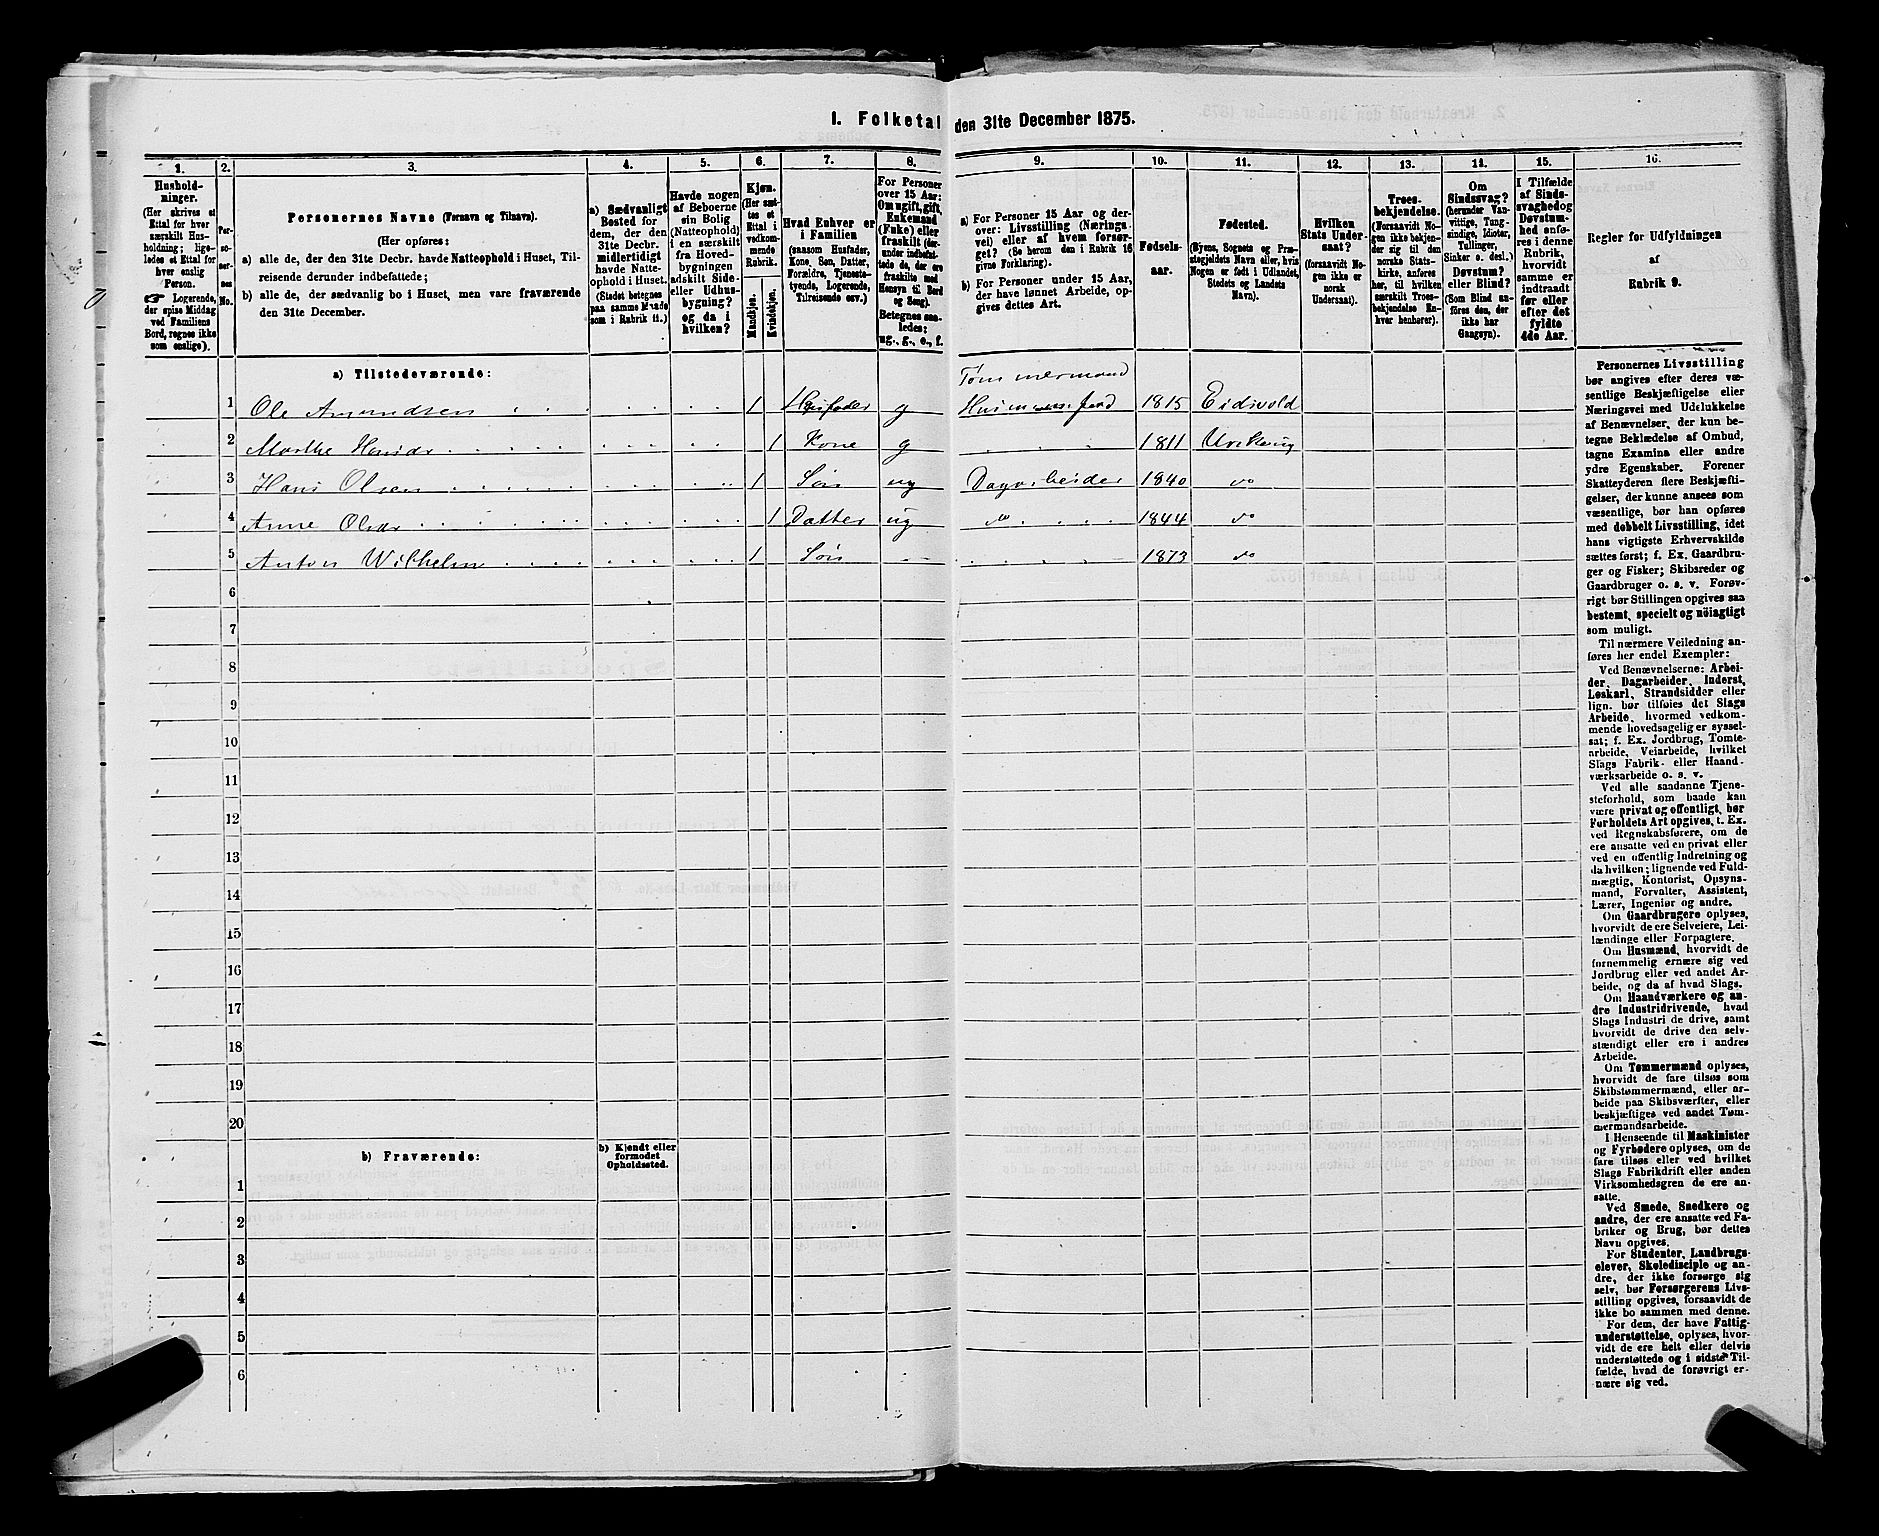 1. Folketal den 31te December 1875.
1. 2. 3. 4. 5. 6. 7. 8. 9. 10. 11. 12. 13. 14. 15. 16.
Hushold-
ninger.
(Her skrives et
Ettal for hver
særskilt Hus-
holdning; lige-
ledes et Ettal for
hver enslig
Person.
☞ Logerende,
der spise Middag
ved Familiens
Bord, regnes ikke
som enslige).
Per-
so-
ner-
nes
No.
Personernes Navne (Fornavn og Tilnavn).
(Her opføres:
a) alle de, der den 31te Decbr. havde Natteophold i Huset, Til-
reisende derunder indbefattede;
b) alle de, der sædvanlig bo i Huset, men vare fraværende
den 31te December.
a) Sædvanligt
Bosted for
dem, der den
31te Decbr.
midlertidigt
havde Natte-
ophold i Huset.
(Stedet betegnes
paa samme Maade
som i Rubrik 11.)
Havde nogen
af Beboerne
sin Bolig
(Natteophold)
i en særskilt
fra Hoved-
bygningen
adskilt Side-
eller Udhus-
bygning?
og da i
hvilken?
Kjøn.
(Her sæt-
tes et
Ettal i
vedkom-
mende
Rubrik.
Mandkjøn.
Kvindekjøn.
Hvad Enhver er
i Familien
(saasom Husfader,
Kone, Søn, Datter,
Forældre, Tjeneste-
tyende, Logerende,
Tilreisende osv.)
For Personer
over 15 Aar:
Om ugift, gift,
Enkemand
(Enke) eller
fraskilt (der-
under indbefat-
tede de, der ere
fraskilte med
Hensyn til Bord
og Seng).
Betegnes saa-
ledes:
ug., g., e., f.
a) For Personer 15 Aar og der-
over: Livsstilling (Nærings-
vei) eller af hvem forsør-
get? (Se herom den i Rubrik 16
givne Forklaring).
b) For Personer under 15 Aar,
der have lønnet Arbeide, op-
gives dettes Art.
Fødsels-
aar.
Fødested.
(Byens, Sognets og Præ-
stegjeldets Navn eller, hvis
Nogen er født i Udlandet,
Stedets og Landets
Navn).
Hvilken
Stats Under-
saat?
(forsaavidt No-
gen ikke er
norsk
Undersaat).
Troes-
bekjendelse.
(Forsaavidt No-
gen ikke bekjen-
der sig til den
norske Stats-
kirke, anføres
her, til hvilken
særskilt Troes-
bekjendelse En-
hver henhører).
Om
Sindssvag?
(herunder Van-
vittige, Tung-
sindige, Idioter,
Tullinger,
Sinker o. desl.)
Døvstum?
eller Blind?
(Som Blind an-
føres den, der
ikke har
Gangsyn).
I Tilfælde
af Sinds-
svaghed og
Døvstum-
hed anfø-
res i denne
Rubrik,
hvorvidt
samme er
indtraadt
før eller
efter det
fyldte
4de Aar.
Regler for Udfyldningen
af
Rubrik 9.
a) Tilstedeværende:
Tømmermand
1 Ole Amundsen 1 Husfader g Husmand m Jord 1815 Eidsvold
2 Marthe Hansdr 1 Kone g 1811 Urskoug
3 Hans Olsen 1 Søn ug Dagarbeider 1840 do
4 Anne Olsdr 1 Datter ug do 1844 do
5 Anton Wilhelm 1 Søn 1873 do
6
7
8
9
10
11
12
13
14
15
16
17
18
19
20
b) Fraværende:
b) Kjendt eller
formodet
Opholdssted.
1
2
3
4
5
6
Personernes Livsstilling
bør angives efter deres væ-
sentlige Beskjæftigelse eller
Næringsvei med Udelukkelse
af Benævnelser, der kun be-
tegne Beklædelse af Ombud,
tagne Examina eller andre
ydre Egenskaber. Forener
Skatteyderen flere Beskjæfti-
gelser, der kunne ansees som
væsentlige, bør han opføres
med dobbelt Livsstilling, idet
hans vigtigste Erhvervskilde
sættes først; f. Ex. Gaardbru-
ger og Fisker; Skibsreder og
Gaardbruger o. s. v. Forøv-
rigt bør Stillingen opgives saa
bestemt, specielt og nöiagtigt
som muligt.
Til nærmere Veiledning an-
føres her endel Exempler:
Ved Benævnelserne: Arbei-
der, Dagarbeider, Inderst,
Løskarl, Strandsidder eller
lign. bør tilføies det Slags
Arbeide, hvormed vedkom-
mende hovedsagelig er syssel-
sat; f. Ex. Jordbrug, Tomte-
arbeide, Veiarbeide, hvilket
Slags Fabrik- eller Haand-
værksarbeide o. s. v.
Ved alle saadanne Tjene-
steforhold, som baade kan
være privat og offentligt, bør
Forholdets Art opgives, t. Ex.
ved Regnskabsførere, om de
ere ansatte ved en privat eller
ved en offentlig Indretning og
da hvilken; lignende ved Fuld-
mægtig, Kontorist, Opsyns-
mand, Forvalter, Assistent,
Lærer, Ingeniør og andre.
Om Gaardbrugere oplyses,
hvorvidt de ere Selveiere, Lei-
lændinge eller Forpagtere.
Om Husmænd, hvorvidt de
fornemmelig ernære sig ved
Jordbrug eller ved andet Ar-
beide, og da af hvad Slags.
Om Haandværkere og an-
dre Industridrivende, hvad
Slags Industri de drive, samt
hvorvidt de drive den selv-
stændigt eller ere i andres
Arbeide.
Om Tømmermænd oplyses,
hvorvidt de fare tilsøs som
Skibstømmermænd, eller ar-
beide paa Skibsværfter, eller
beskjæftiges ved andet Tøm-
mermandsarbeide.
I Henseende til Maskinister
og Fyrbødere oplyses, om de
fare tilsøs eller ved hvilket
Slags Fabrikdrift eller anden
Virksomhedsgren de ere an-
satte.
Ved Smede, Snedkere og
andre, der ere ansatte ved Fa-
briker og Brug, bør dettes
Navn opgives.
For Studenter, Landbrugs-
elever, Skoledisciple og an-
dre, der ikke forsørge sig
selv, bør Forsørgerens Livs-
stilling opgives, forsaavidt de
ikke bo sammen med denne.
For dem, der have Fattig-
understøttelse, oplyses, hvor-
vidt de ere helt eller delvis
understøttede og i sidste Til-
fælde, hvad de forøvrigt er-
nære sig ved.